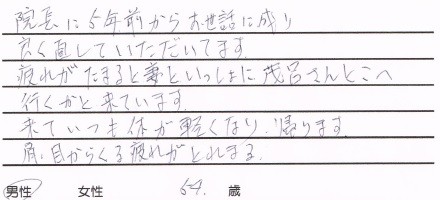 院長に5年前からお世話に成り
良く直していただいてます
疲れがたまると妻といっしょに茂呂さんとこへ
行くかと来ています。
来ていつも体が軽くなり、帰ります
肩、目からくる疲れがとれまる。
男性 女性 64. 歳